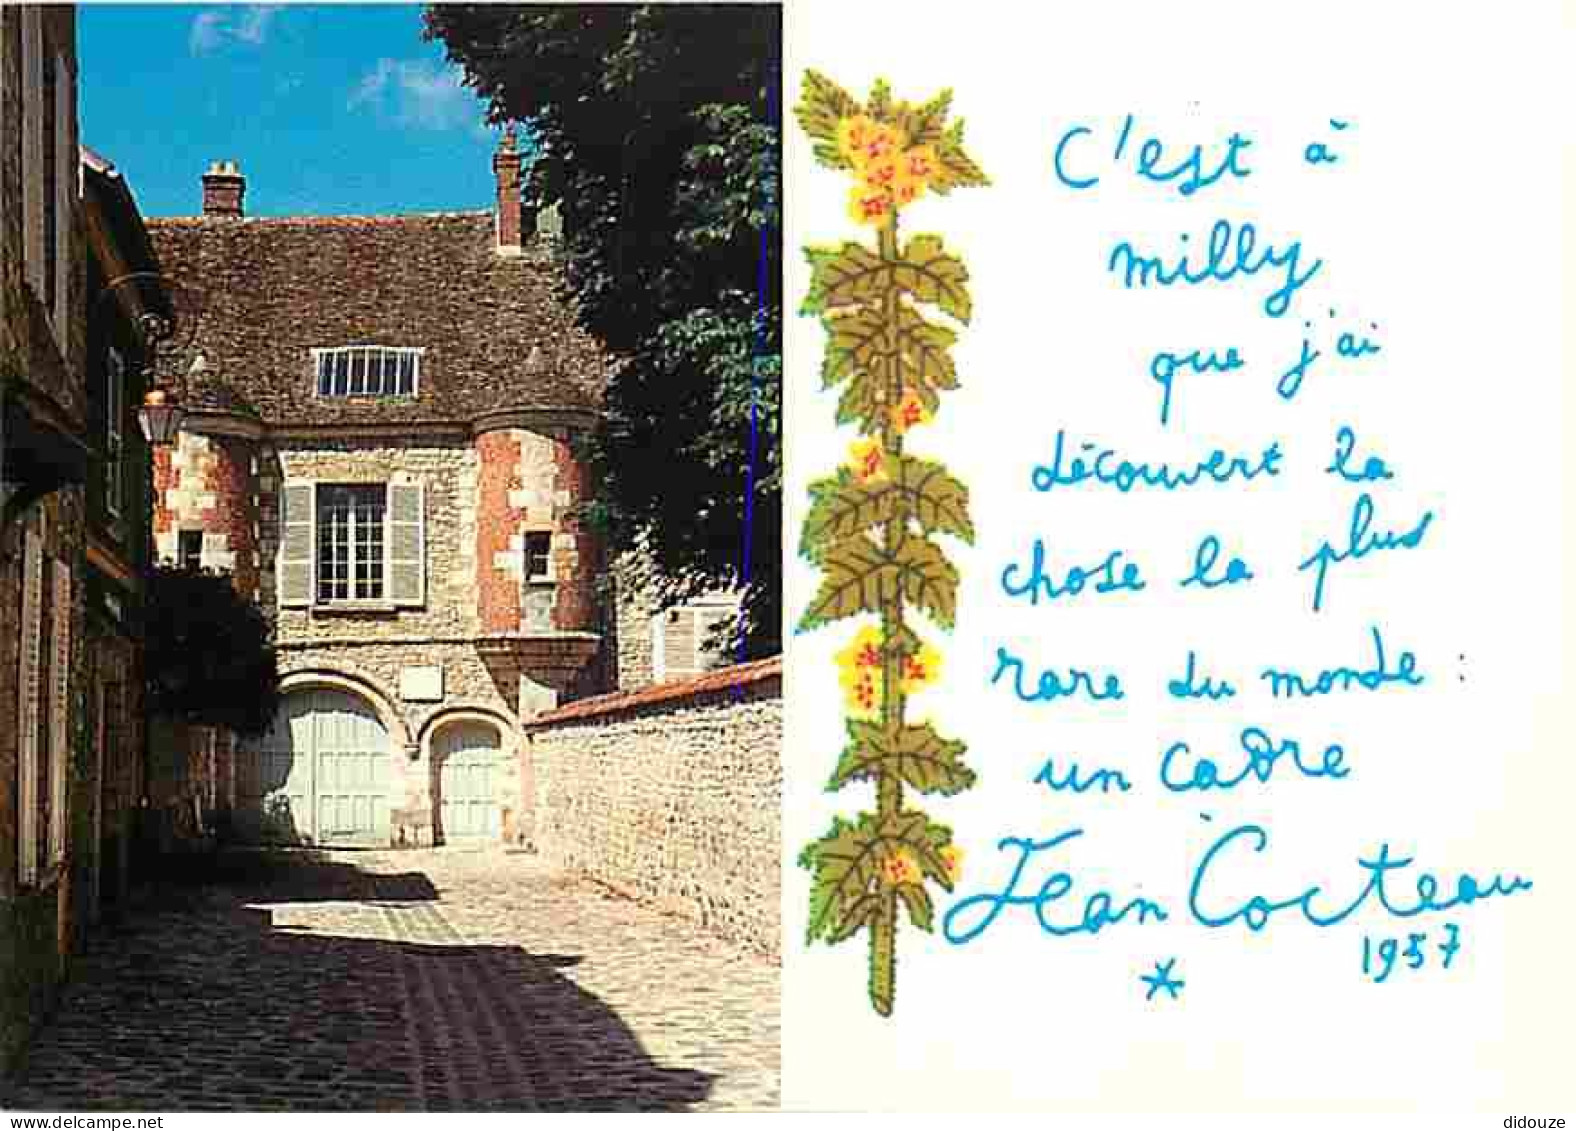 C'est à
milly
que j'ai
découvert la
chose la plus
rare du monde :
un cadre
Jean Cocteau
1957
*
delcampe.net
didouze